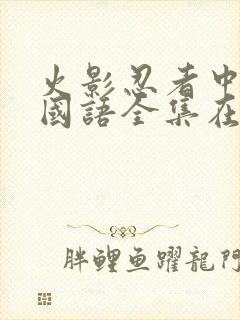 火影忍者中
國語全集在
胖鯉鱼躍龍門